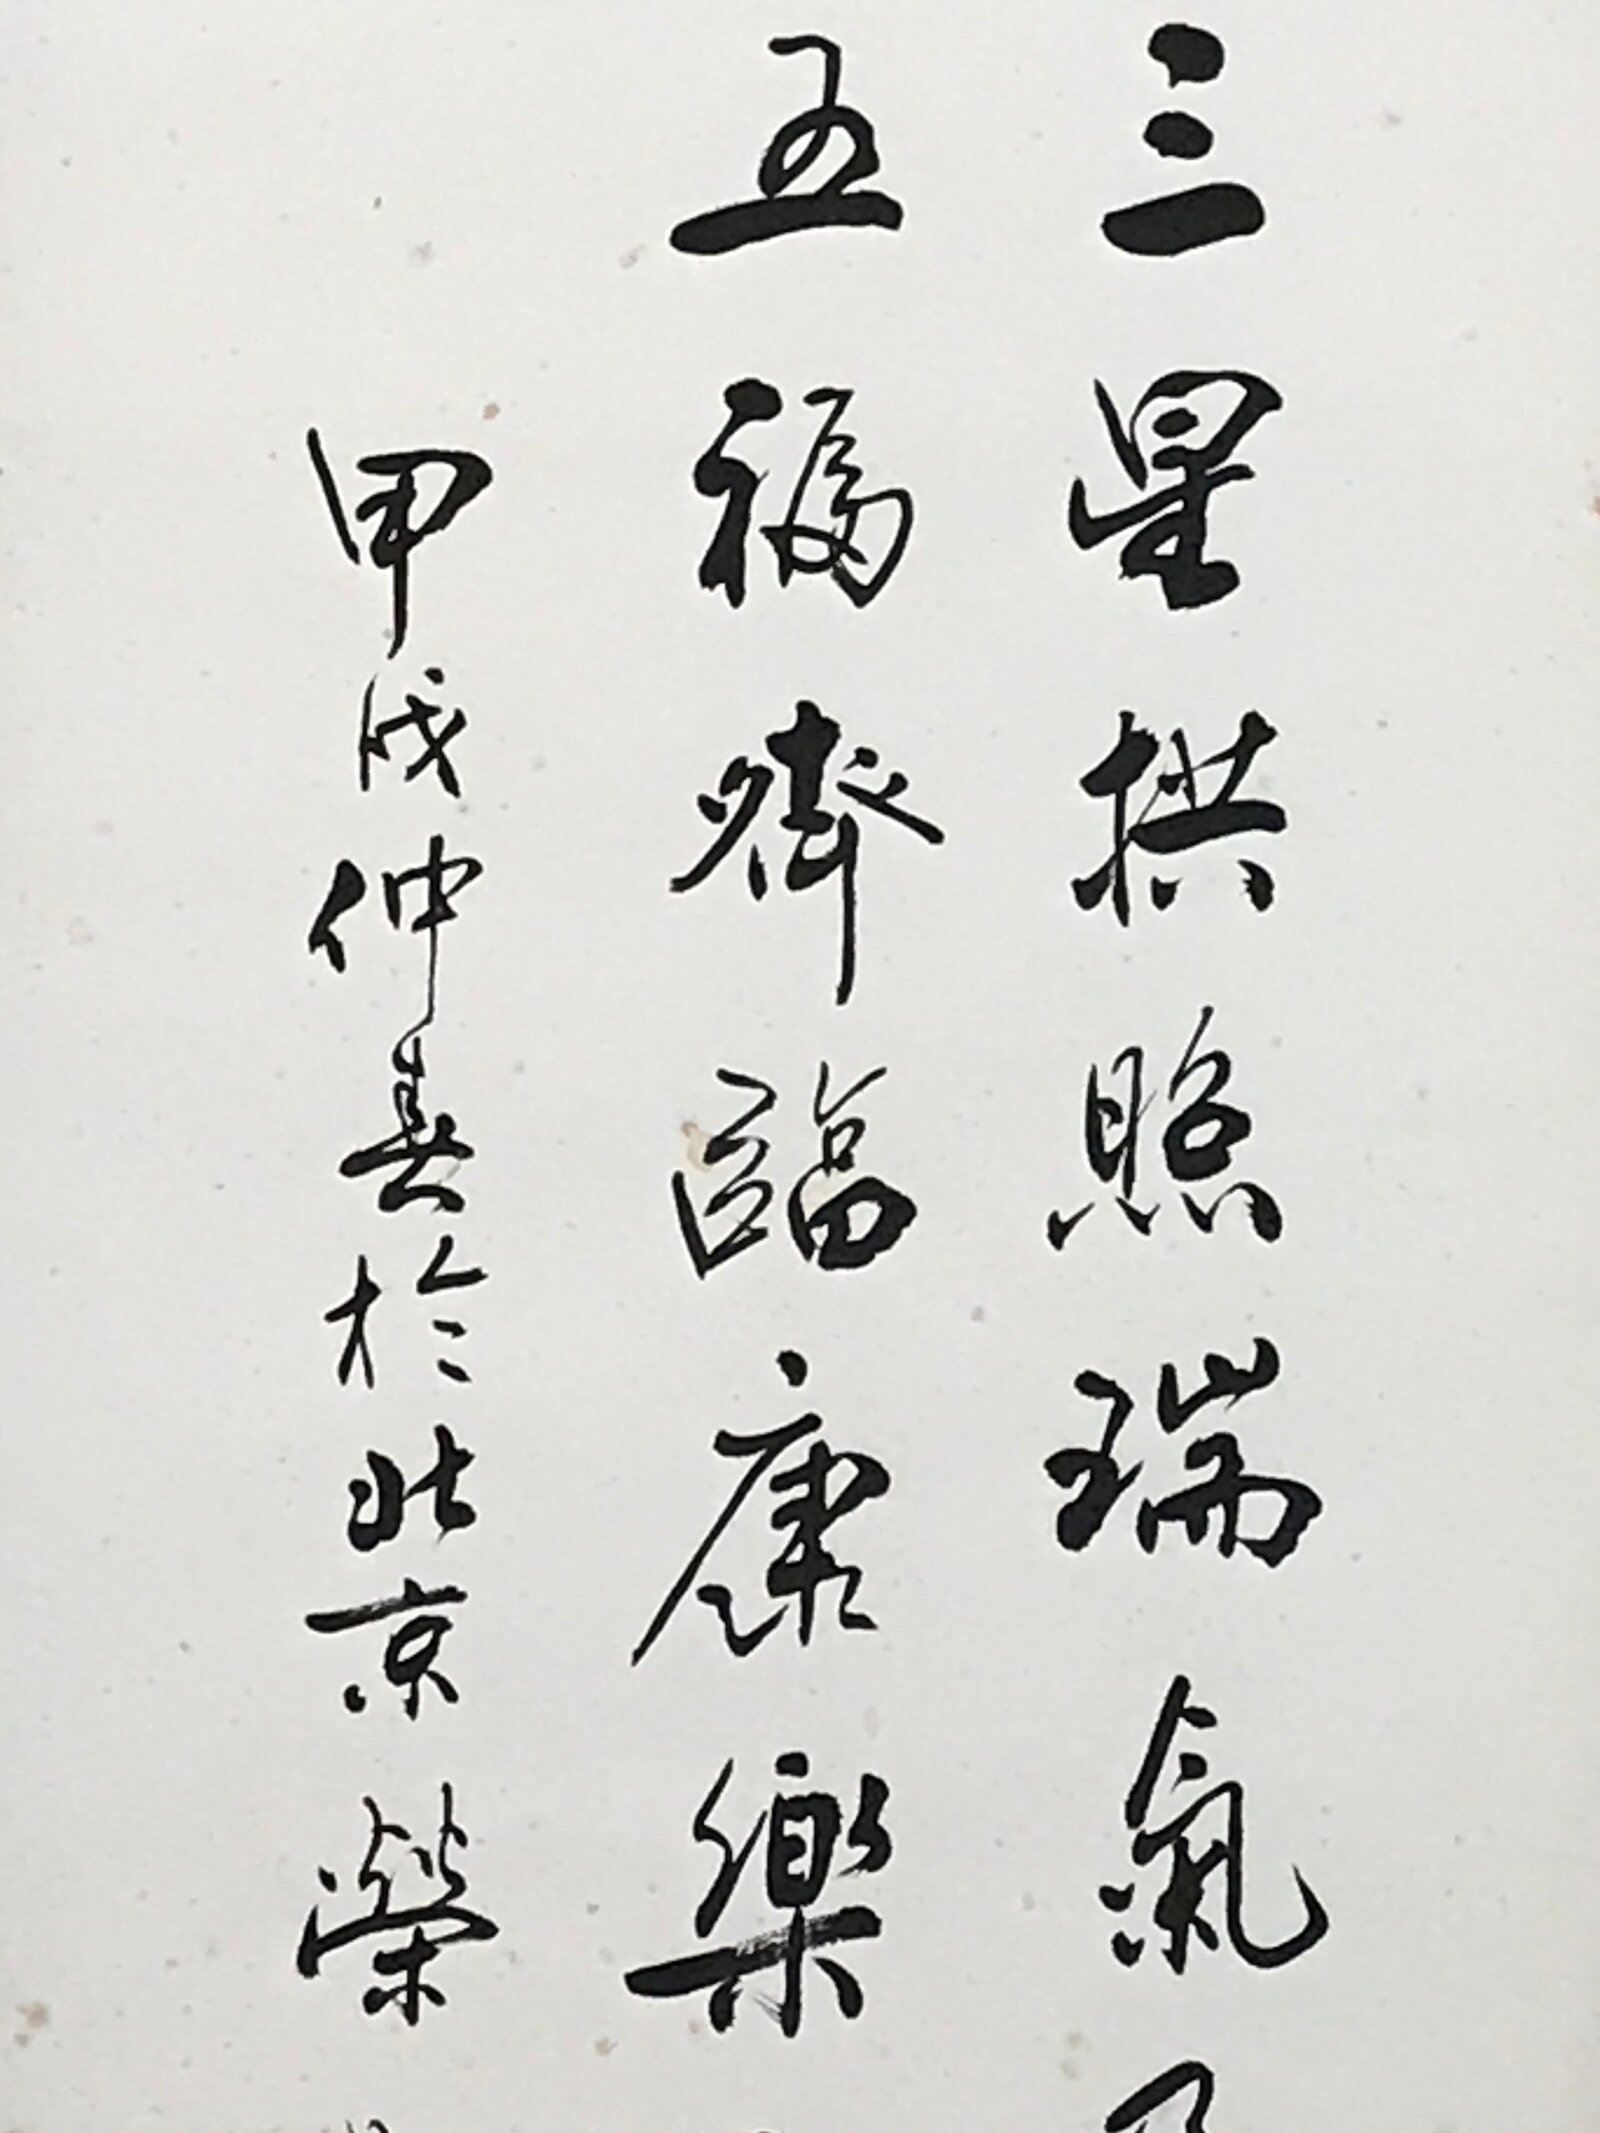 三星拱照瑞氣
五福齊臨康樂
甲戌仲春於北京榮